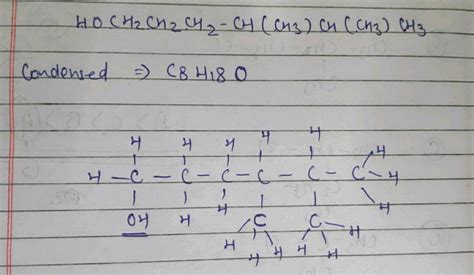 HO CH2CH2CH2-CH(CH3)CH(CH3)CH3
Condensed ⇒ C8H18O
H H H H H
H-C-C-C-C-C-C-H H
OH H H C C H
H H H H H H